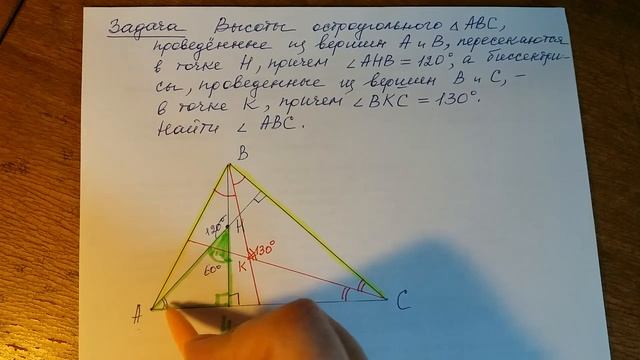 Задача Высоты остроугольного △ABC,
проведённые из вершин A и B, пересекаются
в точке H, причем ∠AHB = 120°, а биссектри-
сы, проведенные из вершин B и C, –
в точке K, причем ∠BKC = 130°.
Найти ∠ ABC.
B
120° H
K 130°
60°
A
C